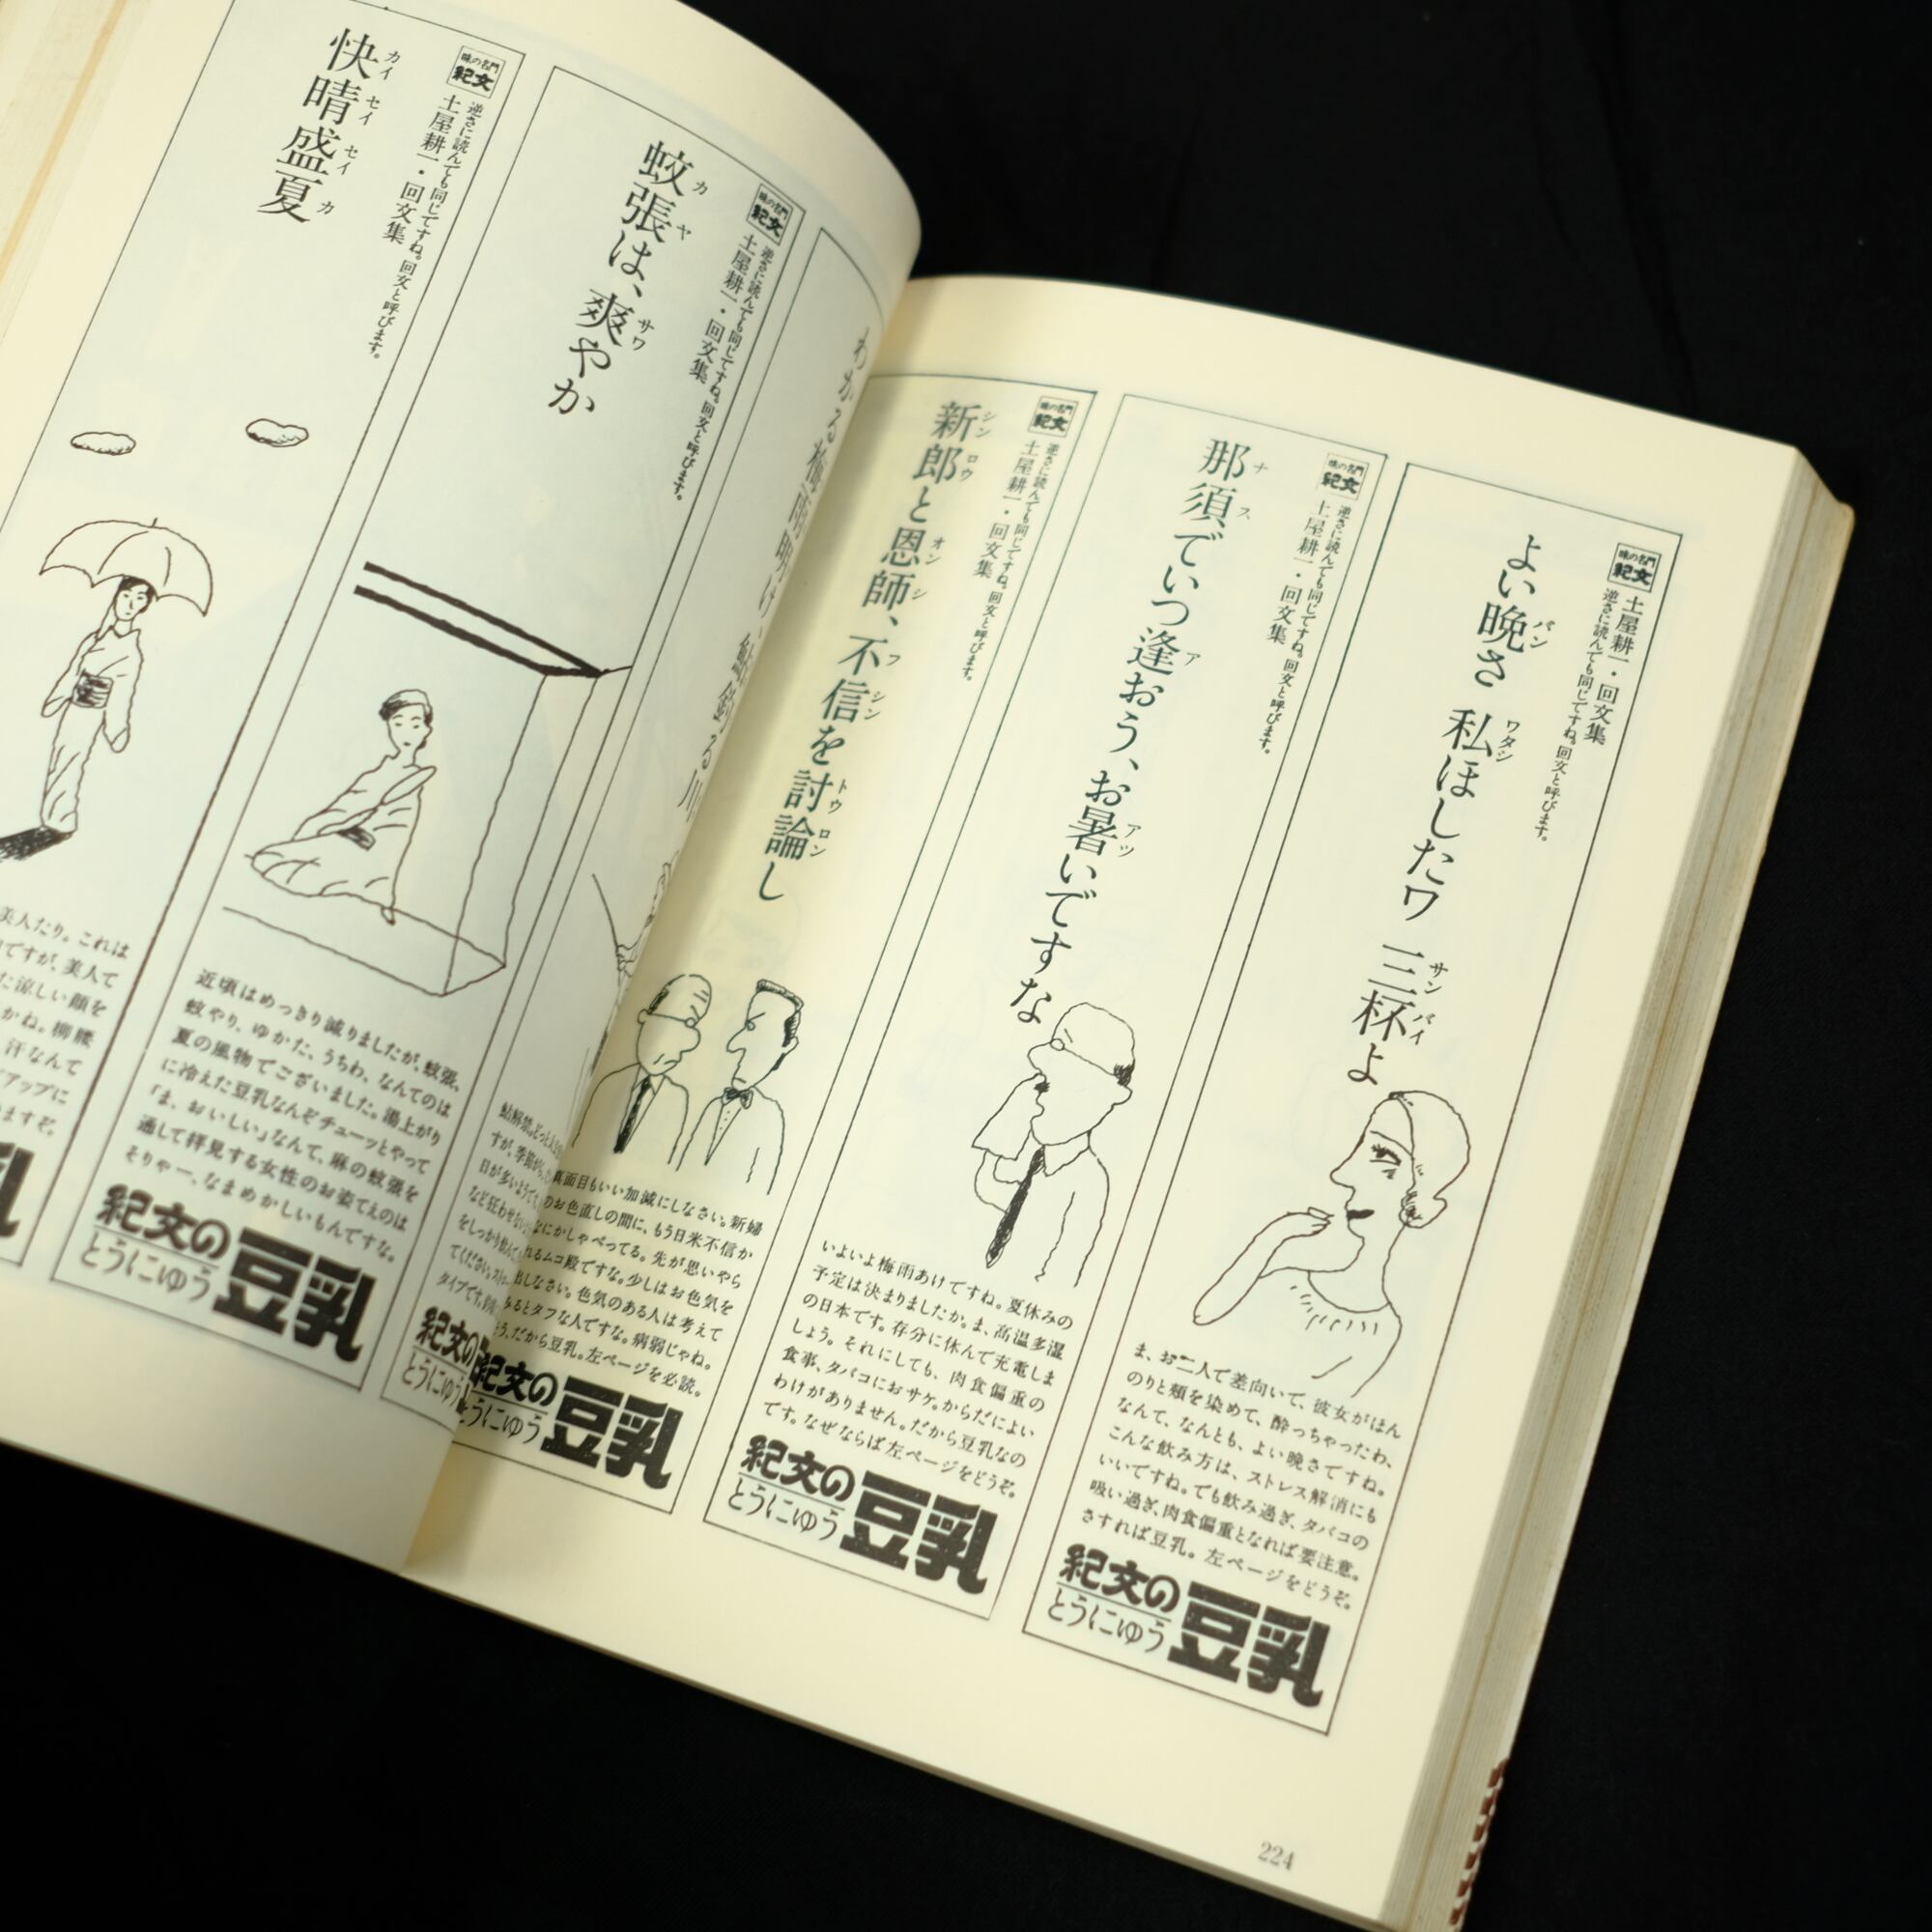 味の名門
紀文
土屋耕一・回文集
逆さに読んでも同じですね。回文と呼びます。
よい晩さ 私ほしたワ 三杯よ
バン
ワタシ
サンバイ
ま、お二人で差向いて、彼女がほん
のりと頬を染めて、酔っちゃったわ、
なんて、なんとも、よい晩さですね。
こんな飲み方は、ストレス解消にも
いいですね。でも飲み過ぎ、タバコの
吸い過ぎ、肉食偏重となれば要注意。
さすれば豆乳。左ページをどうぞ。
紀文の
とうにゅう
豆乳
味の名門
紀文
逆さに読んでも同じですね。回文と呼びます。
土屋耕一・回文集
那須でいつ逢おう、お暑いですな
ナス
ア
アツ
いよいよ梅雨あけですね。夏休みの
予定は決まりましたか。ま、高温多湿
の日本です。存分に休んで充電しま
しょう。それにしても、肉食偏重の
食事、タバコにおサケ。からだによい
わけがありません。だから豆乳なの
です。なぜならば左ページをどうぞ。
紀文の
とうにゅう
豆乳
味の名門
紀文
逆さに読んでも同じですね。回文と呼びます。
土屋耕一・回文集
新郎と恩師、不信を討論し
シンロウ
オンシ
フシン
トウロン
真面目もいい加減にしなさい。新婦
のお色直しの間に、もう日米不信か
なにかしゃべってる。先が思いやら
れるムコ殿ですな。少しはお色気を
出しなさい。色気のある人は考えて
みるとタフな人ですな。病弱じゃね。
う、だから豆乳。左ページを必読。
紀文の
とうにゅう
豆乳
わかる梅雨明け、鮎釣る川
鮎解禁。どっと
すが、季節がら、
日が多いようで
など狂わせない
をしっかり飲んで
てください。
タイプです。
紀文の
とうにゅう
味の名門
紀文
逆さに読んでも同じですね。回文と呼びます。
土屋耕一・回文集
蚊張は、爽やか
カヤ
サワ
近頃はめっきり減りましたが、蚊張、
蚊やり、ゆかた、うちわ、なんてのは
夏の風物でございました。湯上がり
に冷えた豆乳なんぞチューッとやって
「ま、おいしい」なんて、麻の蚊張を
通して拝見する女性のお姿てえのは
そりゃー、なまめかしいもんですな。
紀文の
とうにゅう
豆乳
味の名門
紀文
逆さに読んでも同じですね。回文と呼びます。
土屋耕一・回文集
快晴盛夏
カイセイセイカ
美人たり。これは
ですが、美人て
た涼しい顔を
かね。柳腰
汗なんて
アップに
ますぞ。
乳
224